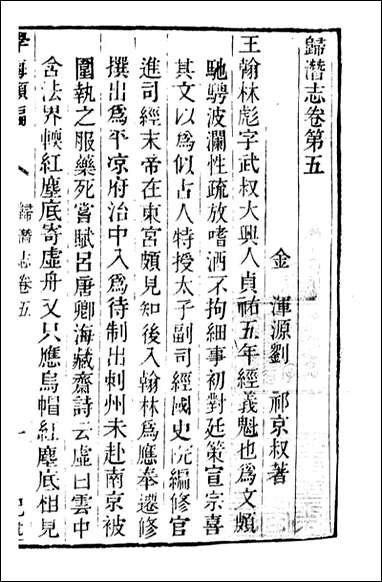 歸潛志卷第五
金 渾源劉 祁京叔著
王翰林彪字武叔大興人貞祐五年經義魁也爲文頗
馳騁波瀾性疏放嗜酒不拘細事初對廷策宣宗喜
其文以爲似古人特授太子副司經國史院編修官
進司經末帝在東宮頗見知後入翰林爲應奉遷修
撰出爲平凉府治中入爲待制出刺州未赴南京被
圍執之服藥死嘗賦呂唐卿海藏齋詩云虛白雲中
含法界輭紅塵底寄虛舟又只應烏帽紅塵底相見
學海類編 歸潛志卷五 一